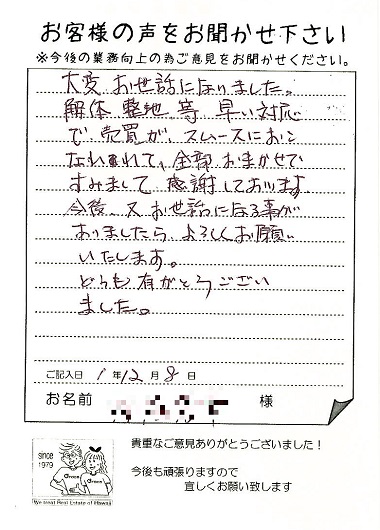 お客様の声をお聞かせ下さい
※今後の業務向上の為ご意見をお聞かせください。
大変お世話になりました。
解体 整地 等 早い対応
で 売買が、スムースにおこ
なわれて、全部おまかせで
すみまして 感謝しております。
今後 又お世話になる事が
ありましたら よろしくお願い
いたします。
どうも有がとうござい
ました。
ご記入日 1年12月8日
お名前 様
since
1979
Green Green
We treat Real Estate of Hawaii
貴重なご意見ありがとうございました！
今後も頑張りますので
宜しくお願い致します